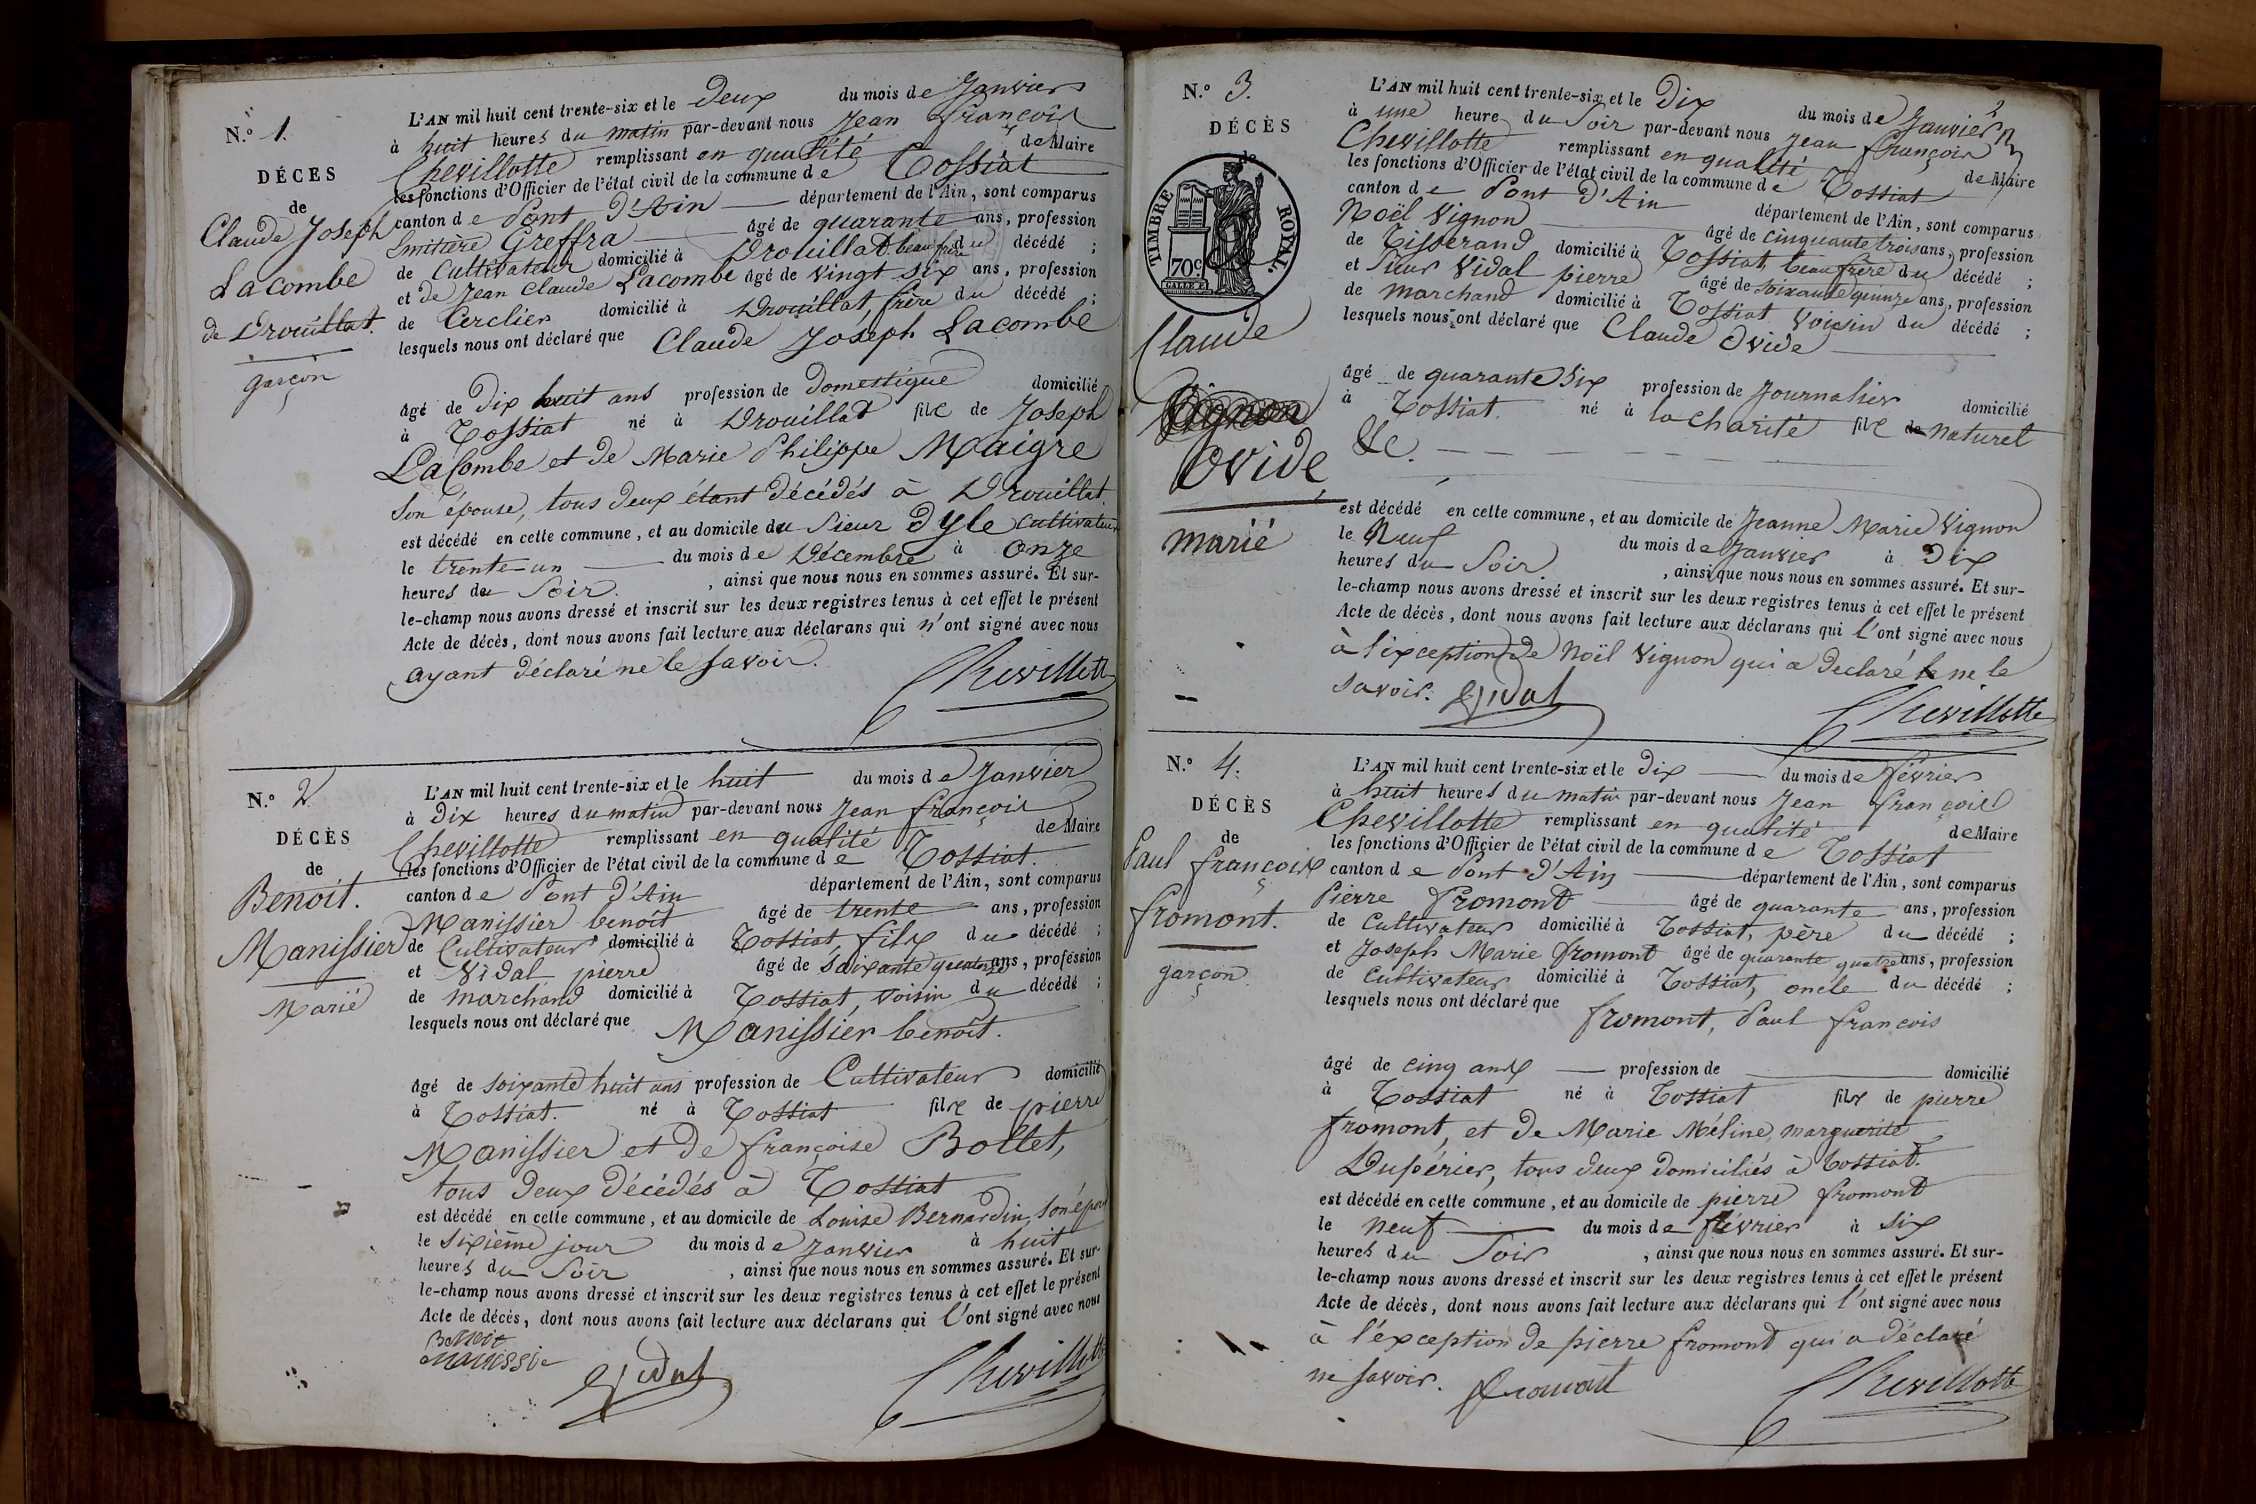 N.º 1.
DÉCÈS
de
Claude Joseph
Lacombe
de Drouillat.
garçon
L'AN mil huit cent trente-six et le Deux du mois de Janvier
à huit heures du matin par-devant nous Jean François
Chevillotte remplissant en qualité de Maire
les fonctions d'Officier de l'état civil de la commune de Tossiat
canton de Pont d'Ain département de l'Ain, sont comparus
Greffra âgé de quarante ans, profession
de Cultivateur domicilié à Drouillat beaufrère du décédé ;
et de Jean Claude Lacombe âgé de vingt six ans, profession
de Cerclier domicilié à Drouillat, frère du décédé ;
lesquels nous ont déclaré que Claude Joseph Lacombe
âgé de Dix huit ans profession de Domestique domicilié
à Tossiat né à Drouillat fils de Joseph
LaCombe et de Marie Philippe Maigre
son épouse, tous deux étant décédés à Drouillat.
est décédé en cette commune, et au domicile du Sieur Dyle Cultivateur
le trente-un du mois de Décembre à Onze
heures du Soir. , ainsi que nous nous en sommes assuré. Et sur-
le-champ nous avons dressé et inscrit sur les deux registres tenus à cet effet le présent
Acte de décès, dont nous avons fait lecture aux déclarans qui n'ont signé avec nous
ayant déclaré ne le savoir.
Chevillotte
N.º 2.
DÉCÈS
de
Benoit.
Manissier
Marié
L'AN mil huit cent trente-six et le huit du mois de Janvier
à Dix heures du matin par-devant nous Jean françois
Chevillotte remplissant en qualité de Maire
les fonctions d'Officier de l'état civil de la commune de Tossiat.
canton de Pont d'Ain département de l'Ain, sont comparus
Manissier benoit âgé de trente ans, profession
de Cultivateur domicilié à Tossiat, fils du décédé ;
et Vidal pierre âgé de soixante quinze ans, profession
de marchand domicilié à Tossiat, voisin du décédé ;
lesquels nous ont déclaré que Manissier benoît.
âgé de soixante huit ans profession de Cultivateur domicilié
à Tossiat. né à Tossiat fils de pierre
Manissier et de françoise Bollet,
tous deux décédés à Tossiat
est décédé en cette commune, et au domicile de Louise Bernardin, son épouse
le sixième jour du mois de Janvier à huit
heures du Soir , ainsi que nous nous en sommes assuré. Et sur-
le-champ nous avons dressé et inscrit sur les deux registres tenus à cet effet le présent
Acte de décès, dont nous avons fait lecture aux déclarans qui l'ont signé avec nous
Benoit
Manissie
Vidal
Chevillotte
2
N.º 3.
DÉCÈS
de
TIMBRE ROYAL.
70c
Claude
Vignon
Ovide
marié
L'AN mil huit cent trente-six et le Dix du mois de Janvier
à une heure du Soir par-devant nous Jean François
Chevillotte remplissant en qualité de Maire
les fonctions d'Officier de l'état civil de la commune de Tossiat
canton de Pont d'Ain département de l'Ain, sont comparus
Noël Vignon âgé de cinquante trois ans, profession
de Tisserand domicilié à Tossiat, beaufrère du décédé ;
et Sieur Vidal pierre âgé de soixante quinze ans, profession
de marchand domicilié à Tossiat voisin du décédé ;
lesquels nous ont déclaré que Claude Ovide
âgé de quarante six profession de Journalier domicilié
à Tossiat. né à la Charité fils de naturel
&c.
est décédé en cette commune, et au domicile de Jeanne Marie Vignon
le Neuf du mois de Janvier à Dix
heures du Soir. , ainsi que nous nous en sommes assuré. Et sur-
le-champ nous avons dressé et inscrit sur les deux registres tenus à cet effet le présent
Acte de décès, dont nous avons fait lecture aux déclarans qui l'ont signé avec nous
à l'exception de Noël Vignon qui a déclaré le ne le
savoir. Vidal
Chevillotte
N.º 4.
DÉCÈS
de
Paul françois
fromont.
garçon
L'AN mil huit cent trente-six et le Dix du mois de février
à huit heures du matin par-devant nous Jean françois
Chevillotte remplissant en qualité de Maire
les fonctions d'Officier de l'état civil de la commune de Tossiat
canton de Pont d'Ain département de l'Ain, sont comparus
Pierre fromont âgé de quarante ans, profession
de Cultivateur domicilié à Tossiat, père du décédé ;
et Joseph Marie fromont âgé de quarante quatre ans, profession
de Cultivateur domicilié à Tossiat, oncle du décédé ;
lesquels nous ont déclaré que fromont, Paul françois
âgé de cinq ans profession de domicilié
à Tossiat né à Tossiat fils de pierre
fromont, et de Marie Méline, marguerite
Dupérier, tous deux domiciliés à Tossiat.
est décédé en cette commune, et au domicile de pierre fromont
le neuf du mois de février à six
heures du Soir , ainsi que nous nous en sommes assuré. Et sur-
le-champ nous avons dressé et inscrit sur les deux registres tenus à cet effet le présent
Acte de décès, dont nous avons fait lecture aux déclarans qui l'ont signé avec nous
à l'exception de pierre fromont qui a déclaré
ne savoir. fromont
Chevillotte